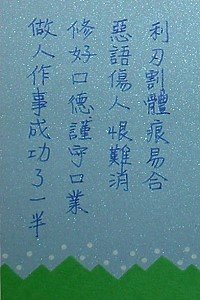 利刃割體痕易合
惡語傷人恨難消
修好口德謹守口業
做人作事成功了一半